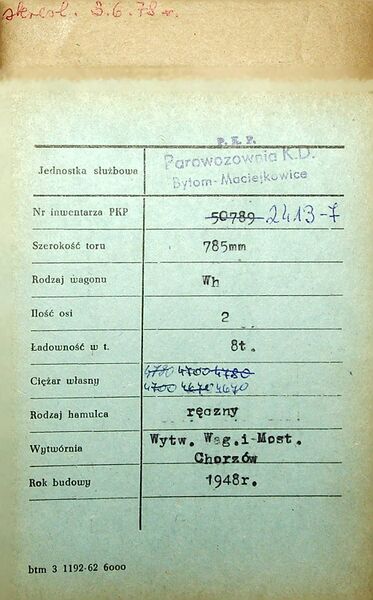 skreśl. 3.6.78 r.
P. K. P.
Parowozownia K.D.
Bytom-Maciejkowice
Jednostka służbowa
Nr inwentarza PKP 50789 2413-7
Szerokość toru 785mm
Rodzaj wagonu Wh
Ilość osi 2
Ładowność w t. 8t.
4780 4700 4780
Ciężar własny
4700 4670 4670
Rodzaj hamulca ręczny
Wytwórnia Wytw. Wag.i-Most.
Chorzów
Rok budowy 1948r.
btm 3 1192-62 6000